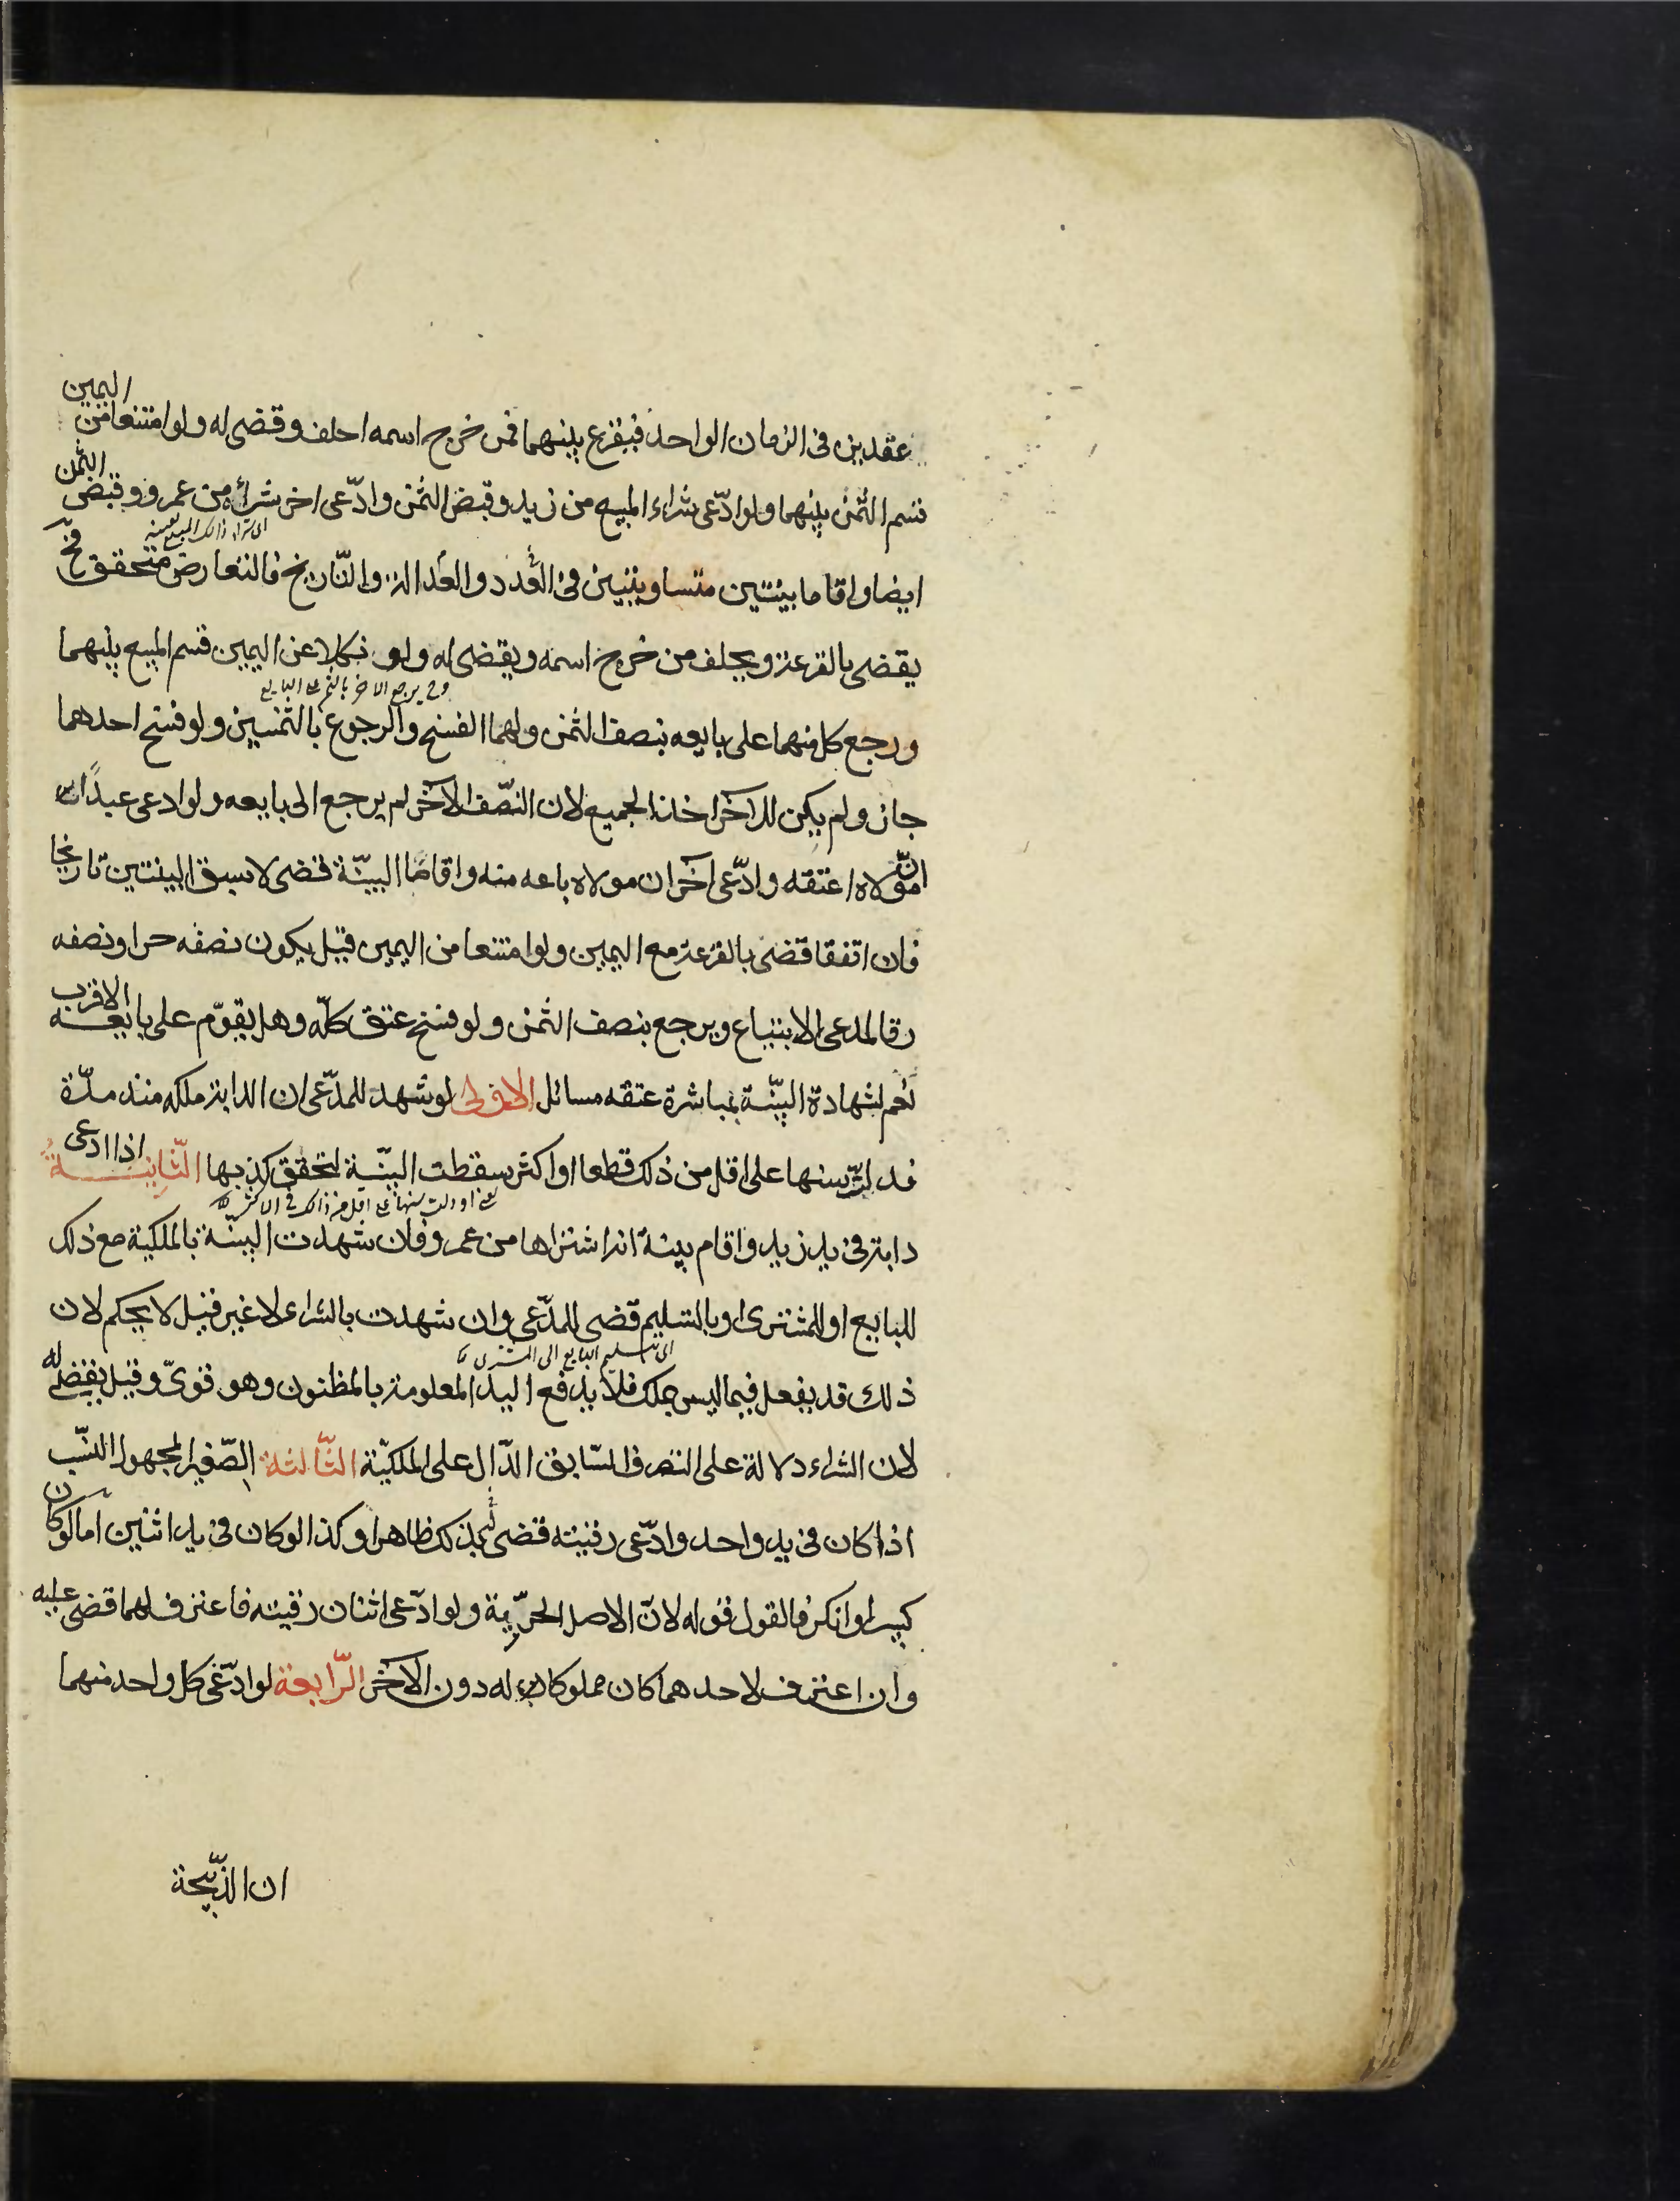 عقدين فى الزمان الواحد فيقرع بينهما فمن خرج اسمه احلف وقضى له ولو امتنعا من اليمين
قسم الثمن بينهما ولو ادّعى شراء المبيع من زيد وقبض الثمن وادّعى اخر شراءه من عمرو وقبض الثمن
ايضا واقاما بينتين متساويتين فى العدد والعدالة والتّاريخ فالتعارض متحقق فح
يقضى بالقرعة ويحلف من خرج اسمه ويقضى له ولو نكلا عن اليمين قسم المبيع بينهما
وح يرجع الاخر بالثمن على البايع
ورجع كل منهما على بايعه بنصف الثمن ولهما الفسخ والرجوع بالثمنين ولو فسخ احدهما
جاز ولم يكن للآخر اخذ الجميع لان النصّف الآخر لم يرجع الى بايعه ولو ادعى عبدًا
انّ مولاه اعتقه وادّعى آخر ان مولاه باعه منه واقاما البيّنة قضى لاسبق البينتين تاريخا
فان اتفقا قضى بالقرعة مع اليمين ولو امتنعا من اليمين قيل يكون نصفه حرا ونصفه
رقا لمدعى الابتياع ويرجع بنصف الثمن ولو فسخ عتق كلّه وهل يقوّم على بايعه الاقرب
نعم لشهادة البيّنة بمباشرة عتقه مسائل الاولى لو شهد للمدّعى ان الدابة ملكه منذ مدّة
فدلّت سنها على اقل من ذلك قطعا او اكثر سقطت البيّنة لتحقق كذبها الثّانيــة اذا ادعى
دابة فى يد زيد واقام بينة انه اشتراها من عمرو فان شهدت البينة بالملكية مع ذلك
للبايع او للمشترى او بالتسليم قضى للمدّعى وان شهدت بالشراء لا غير قيل لا يحكم لان
اى تسليم البايع الى المشترى
ذلك قد يفعل فيما ليس بملك فلا يدفع اليد المعلومة بالمظنون وهو قوىّ وقيل يقضى له
لان الشراء دلالة على التصرف السّابق الدّال على الملكيّة الثّالثة الصّغير المجهول النسّب
اذا كان فى يد واحد وادّعى رقيته قضى له بذلك ظاهرا وكذا لو كان فى يد اثنين اما لو كان
كبيرا وانكر فالقول قوله لانّ الاصل الحرّية ولو ادّعى اثنان رقيته فاعترف لهما قضى عليه
وان اعترف لاحدهما كان مملوكا له دون الآخر الرّابعة لو ادّعى كل واحد منهما
ان الذّبيحة